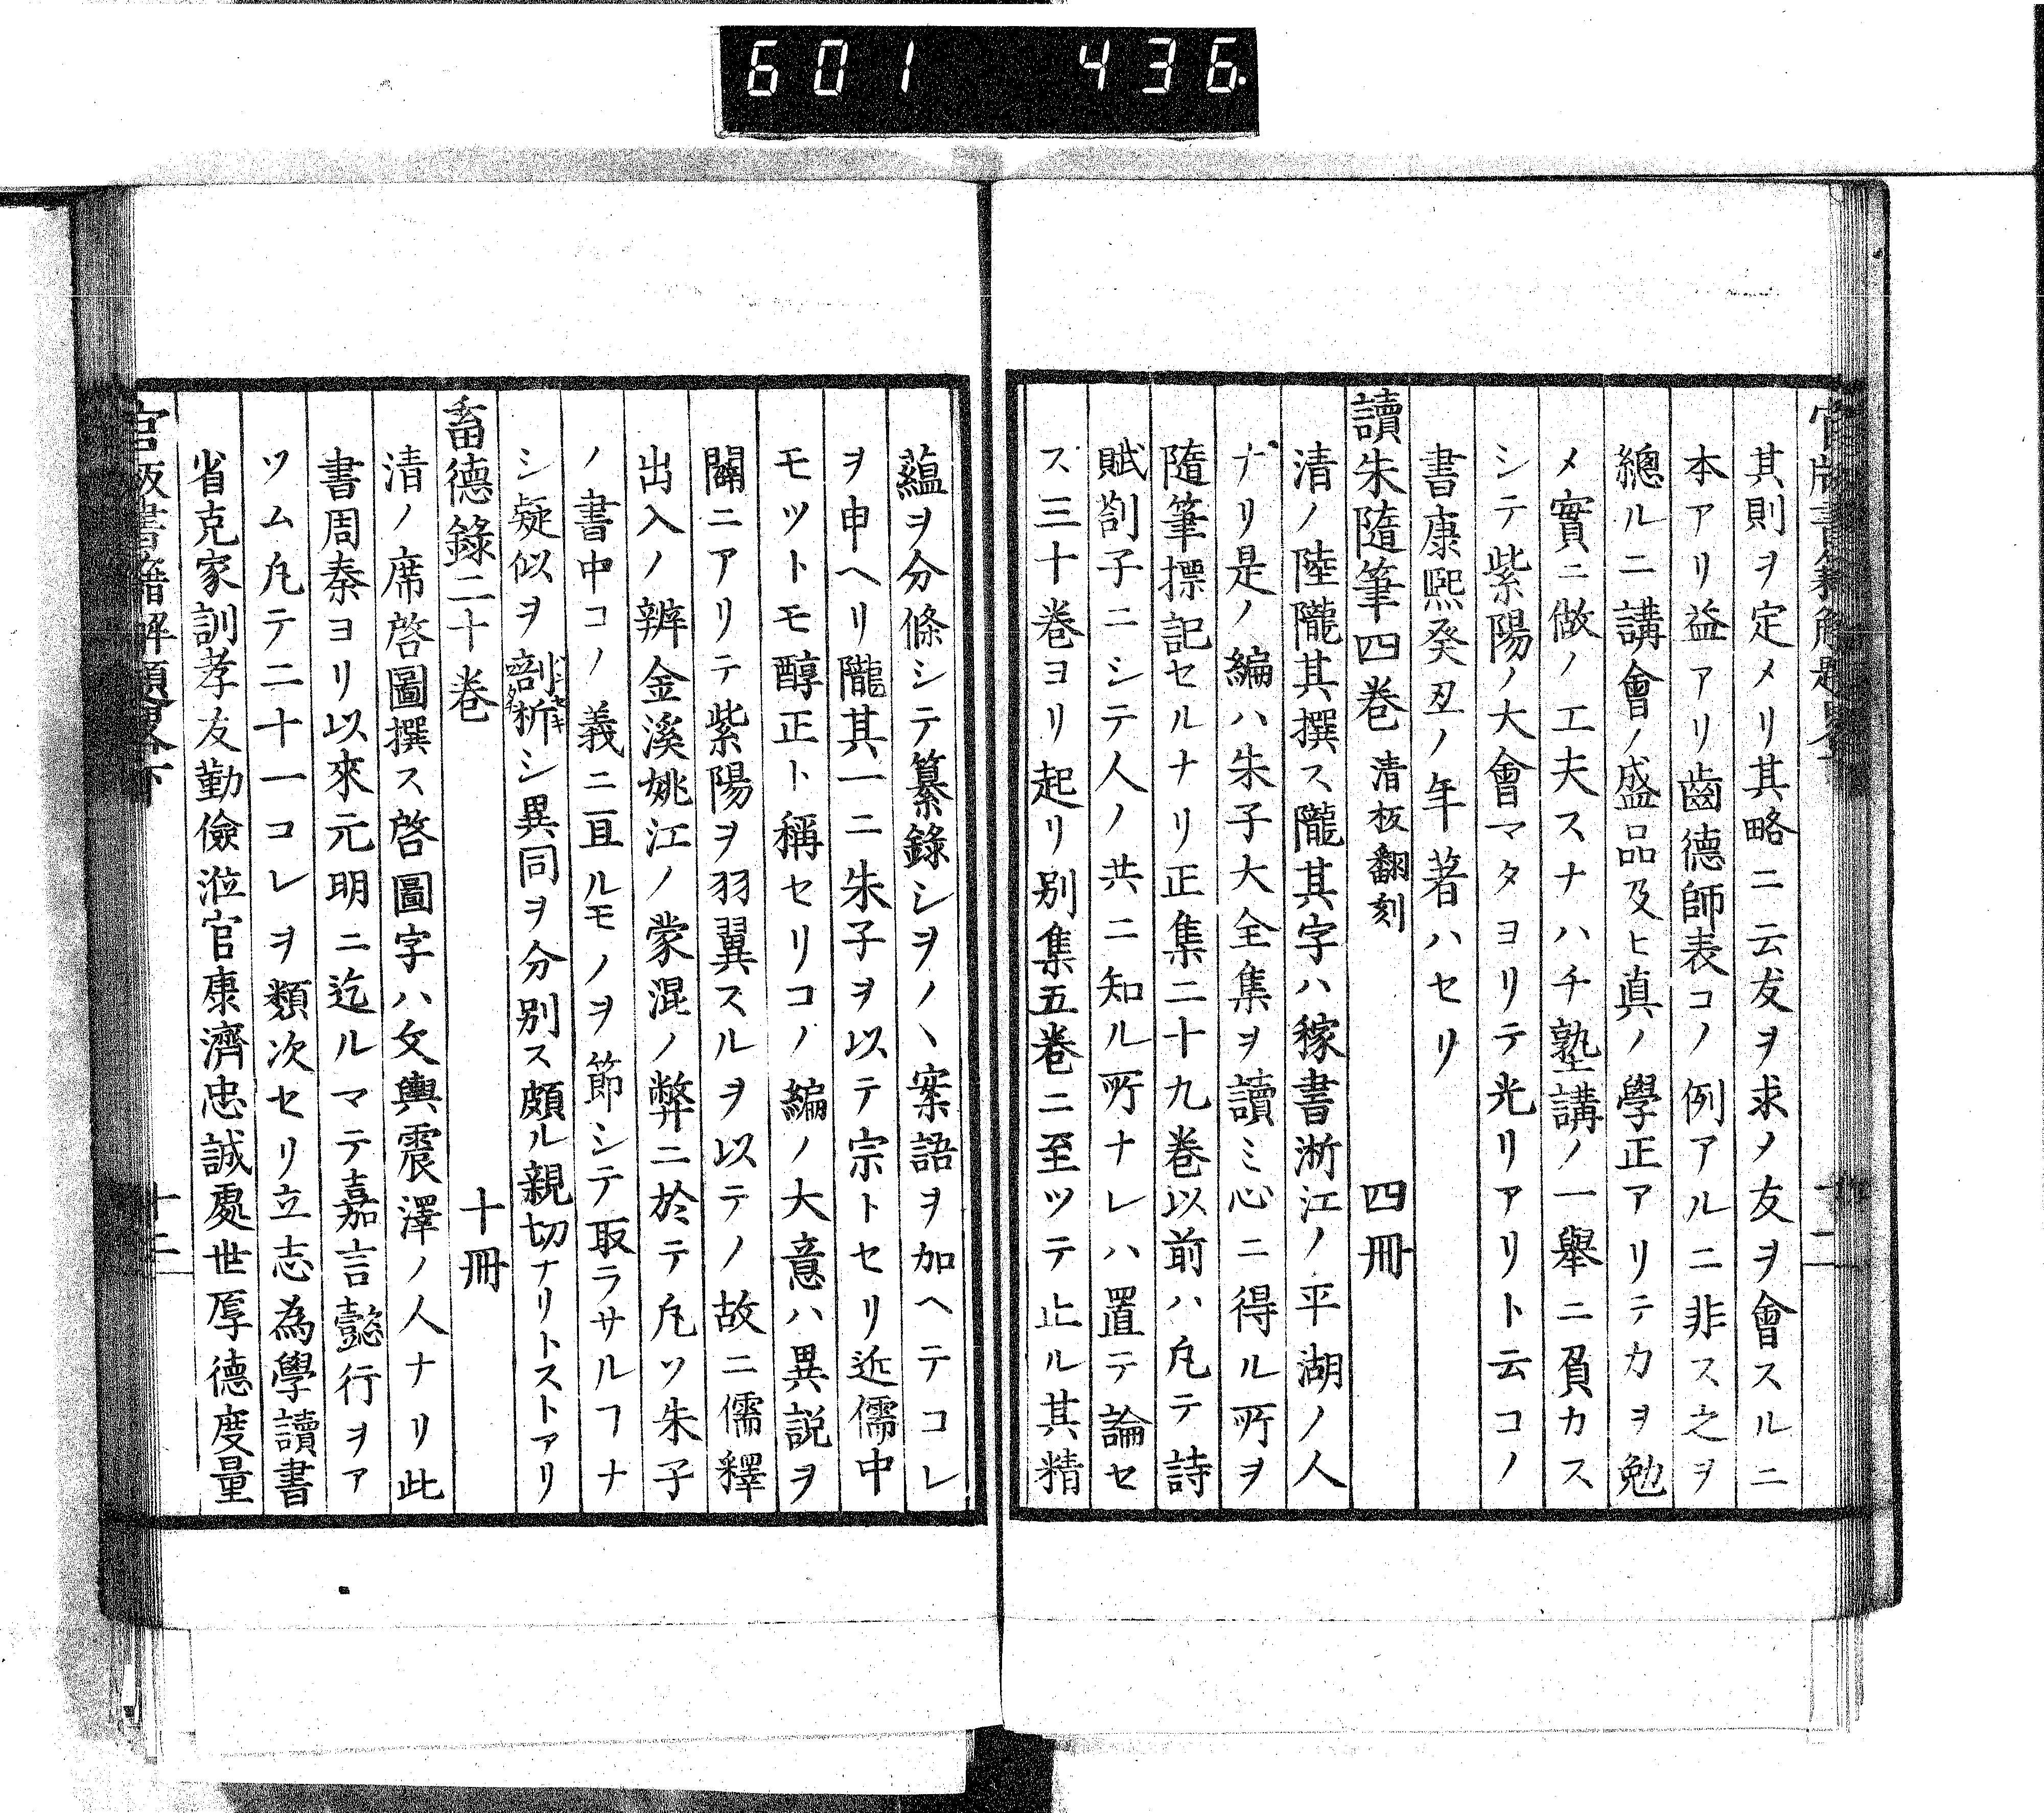 601 436
其則ヲ定メリ其略ニ云友ヲ求ノ友ヲ會スルニ
本アリ益アリ齒德師表コノ例アルニ非ス之ヲ
總ルニ講會ノ盛品及ヒ真ノ學正アリテカヲ勉
メ實ニ做ノ工夫スナハチ塾講ノ一舉ニ負カス
シテ紫陽ノ大會マタヨリテ光リアリト云コノ
書康熙癸丑ノ年著ハセリ
讀朱隨筆四巻 清板翻刻 四冊
清ノ陸隴其撰ス隴其字ハ稼書浙江ノ平湖ノ人
ナリ是ノ編ハ朱子大全集ヲ讀ミ心ニ得ル所ヲ
隨筆摽記セルナリ正集二十九巻以前ハ凡テ詩
賦劄子ニシテ人ノ共ニ知ル所ナレハ置テ論セ
ス三十巻ヨリ起リ別集五巻ニ至ツテ止ル其精
蘊ヲ分條シテ纂錄シヲノヽ案語ヲ加ヘテコレ
ヲ申ヘリ隴其一ニ朱子ヲ以テ宗トセリ近儒中
モツトモ醇正ト稱セリコノ編ノ大意ハ異説ヲ
闢ニアリテ紫陽ヲ羽翼スルヲ以テノ故ニ儒釋
出入ノ辨金溪姚江ノ蒙混ノ弊ニ於テ凡ソ朱子
ノ書中コノ義ニ亘ルモノヲ節シテ取ラサルフナ
シ疑似ヲ剖析シ異同ヲ分別ス頗ル親切ナリトストアリ
畜德錄二十巻 十冊
清ノ席啓圖撰ス啓圖字ハ文輿震澤ノ人ナリ此
書周秦ヨリ以來元明ニ迄ルマテ嘉言懿行ヲア
ツム凡テ二十一コレヲ類次セリ立志為學讀書
省克家訓孝友勤儉涖官康濟忠誠處世厚德度量
官板書籍解題畧下 十二